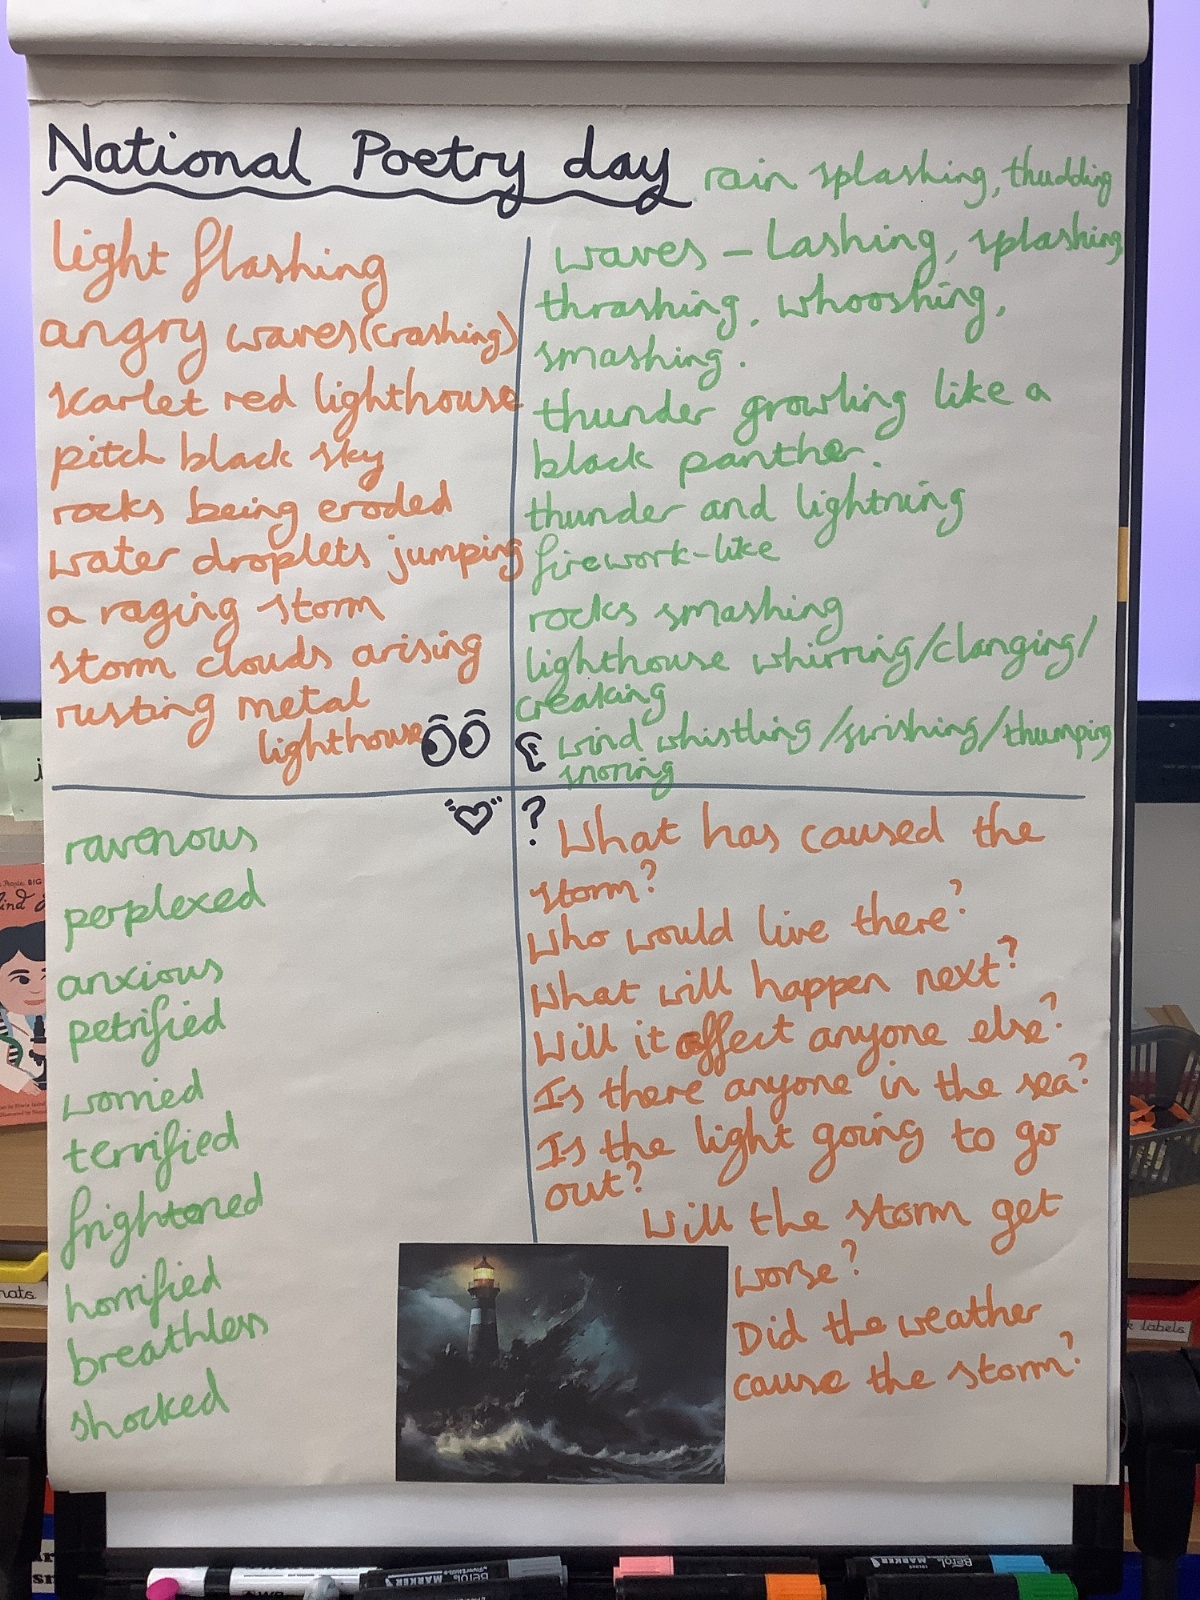 National Poetry day
light flashing
angry waves (crashing)
scarlet red lighthouse
pitch black sky
rocks being eroded
water droplets jumping
a raging storm
storm clouds arising
rusting metal
lighthouse
rain splashing, thudding
waves - Lashing, splashing
thrashing, whooshing,
smashing.
thunder growling like a
black panther.
thunder and lightning
firework-like
rocks smashing
lighthouse whirring/clanging/
creaking
wind whistling/swishing/thumping
snoring
ravenous
perplexed
anxious
petrified
worried
terrified
frightened
horrified
breathless
shocked
? What has caused the
storm?
Who would live there?
What will happen next?
Will it affect anyone else?
Is there anyone in the sea?
Is the light going to go
out?
Will the storm get
worse?
Did the weather
cause the storm?
labels
Berol
MARKER
Berol
MARKER